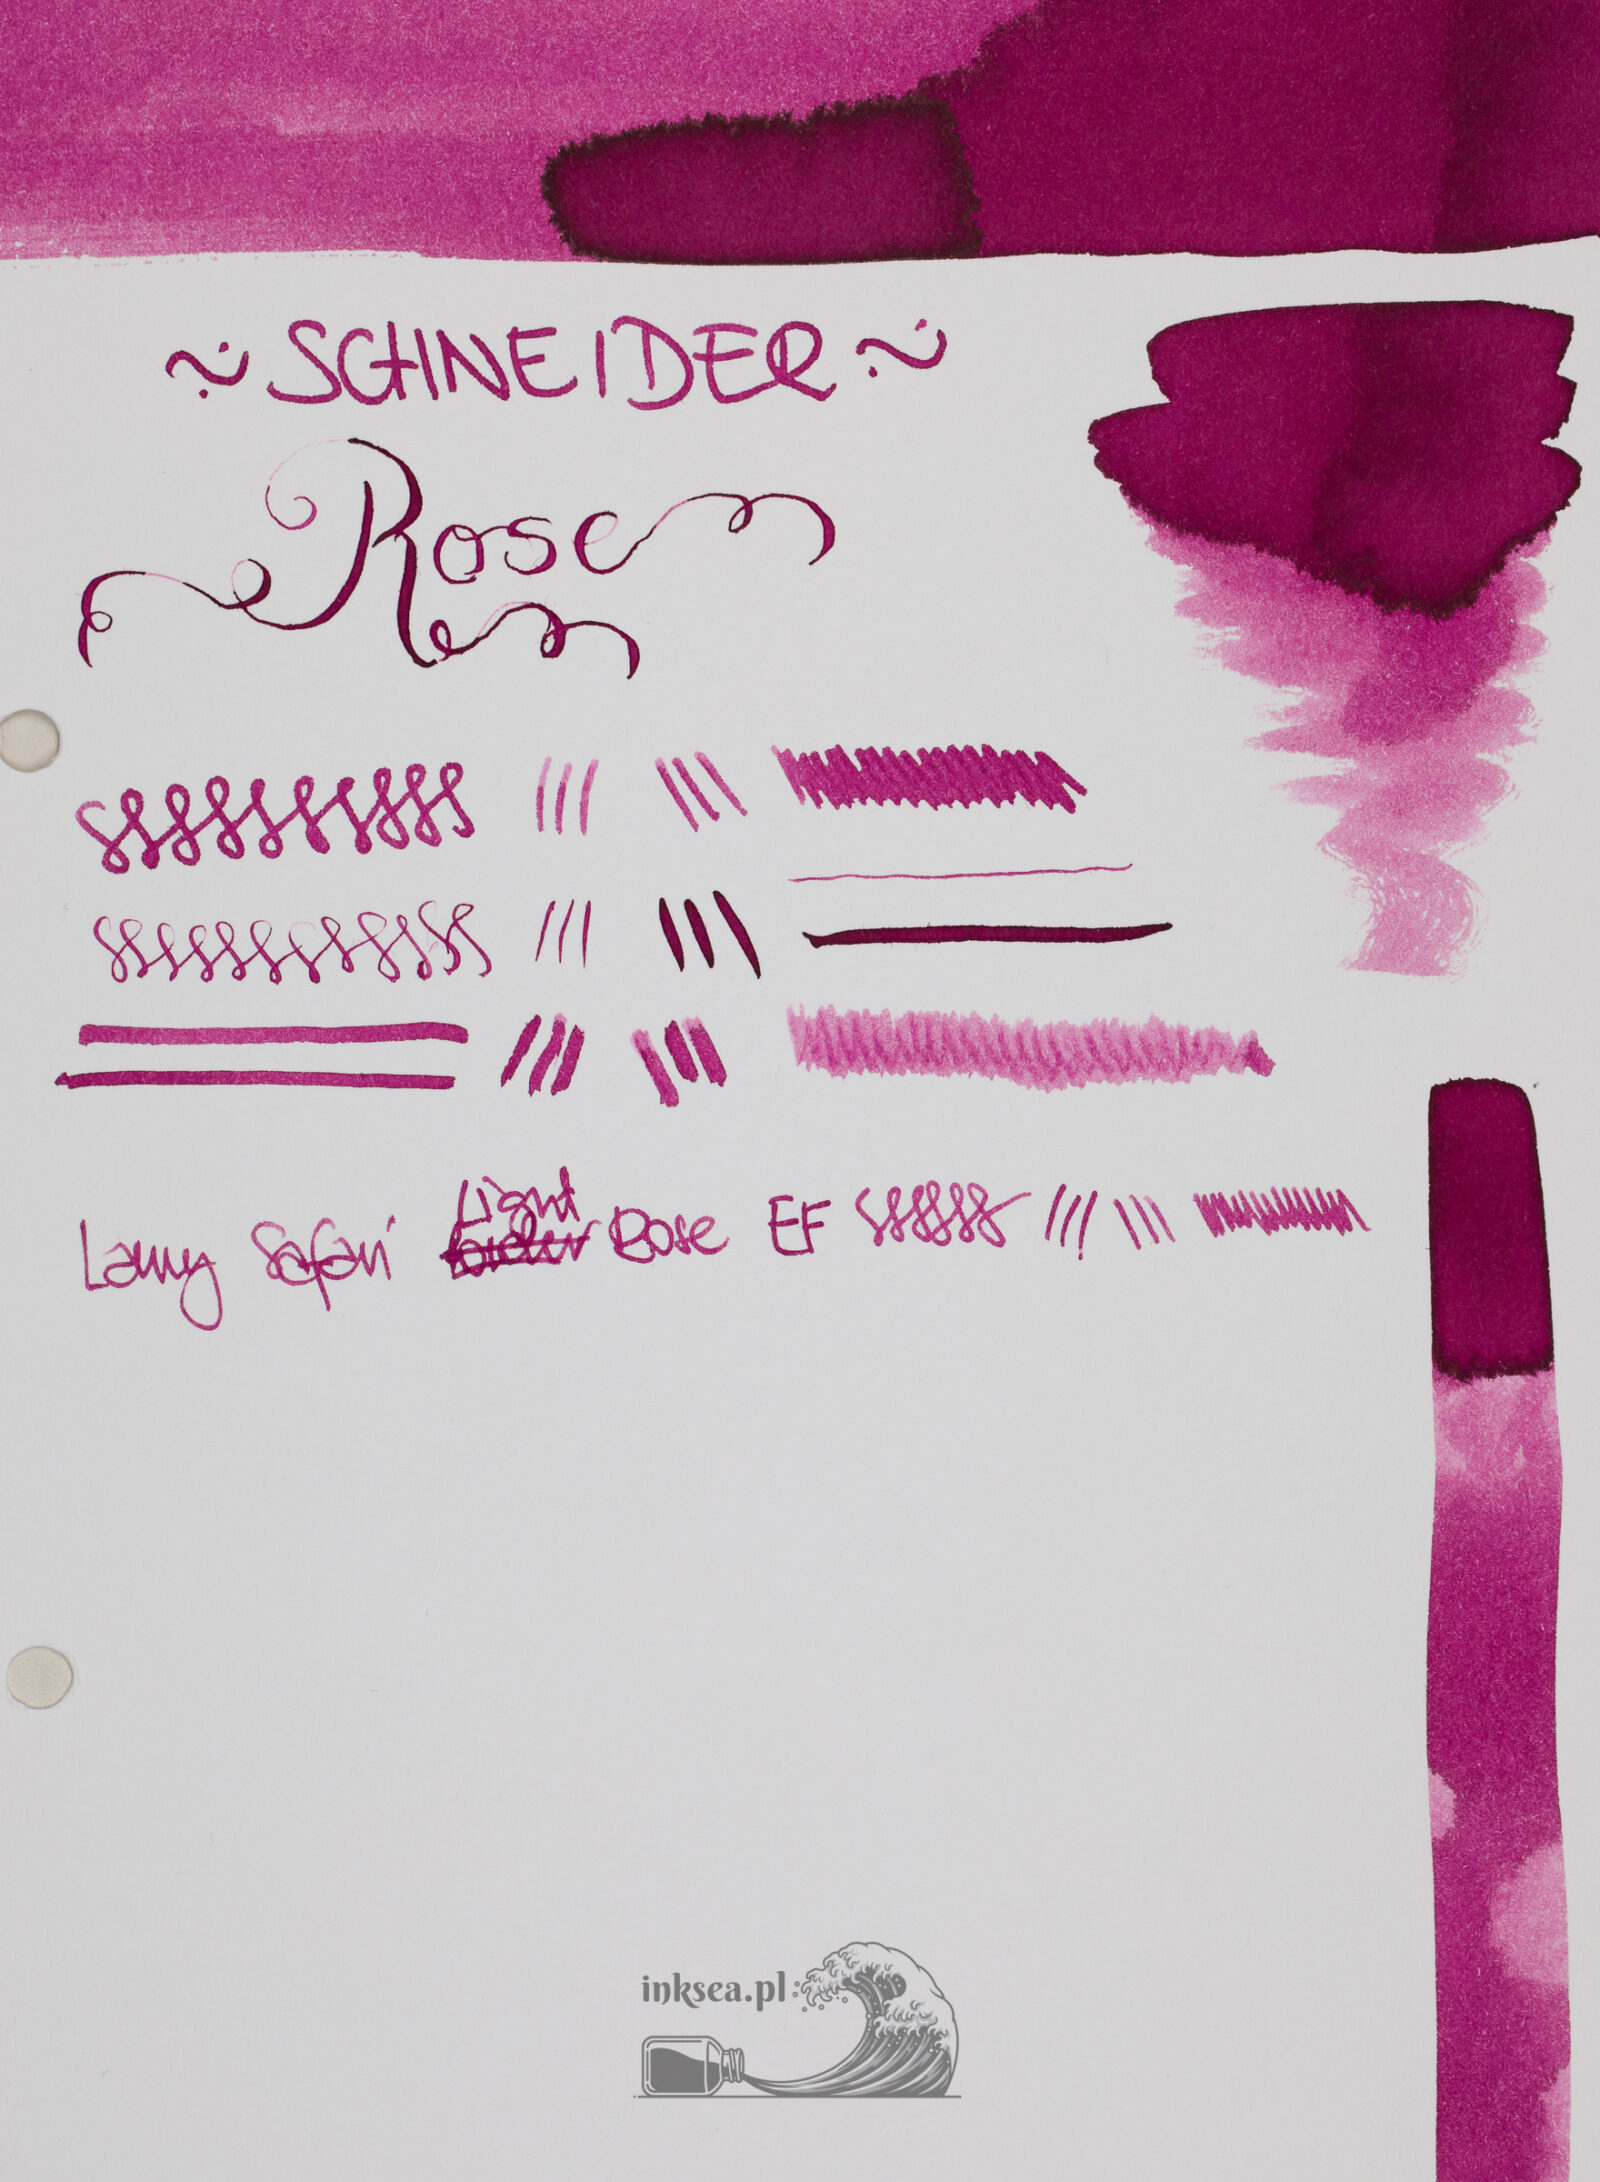 ~ SCHNEIDER ~
Rose
Light
Lamy Safari Rose EF
inksea.pl